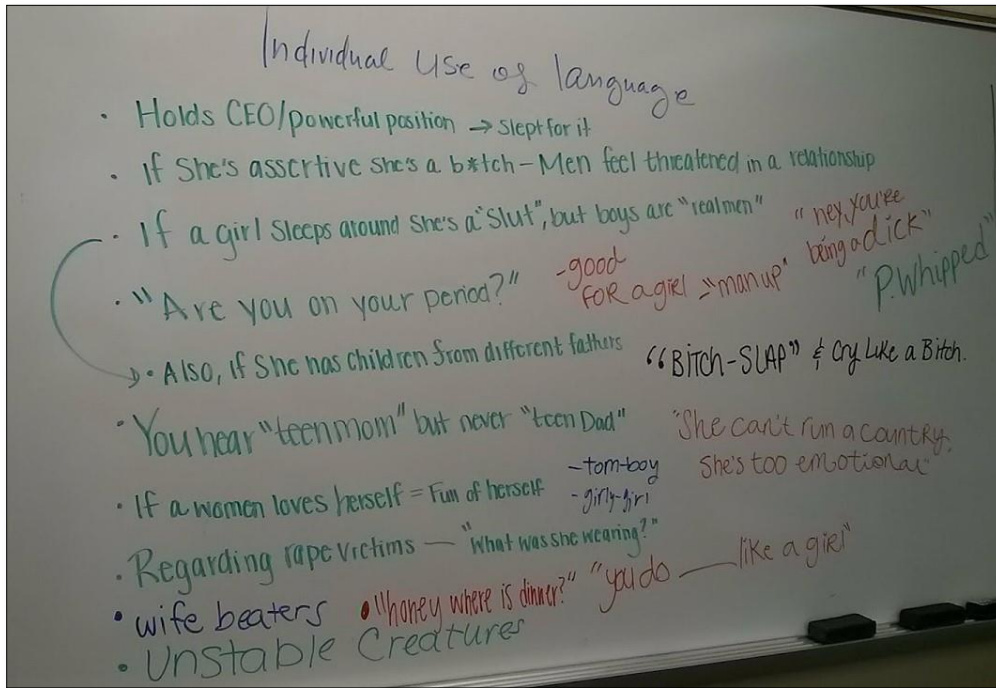 Individual Use of language
• Holds CEO/powerful position → slept for it
• If She's assertive she's a b*tch - Men feel threatened in a relationship
• If a girl sleeps around she's a "Slut", but boys are "real men"
"hey, you're
being a dick"
• "Are you on your period?"
- good
FOR a girl - "man up"
"P. Whipped"
• Also, if She has children from different fathers
"BITCH-SLAP" & Cry Like a Bitch.
• You hear "teen mom" but never "teen Dad"
"She can't run a country.
She's too emotional"
• If a women loves herself = Full of herself
- tom-boy
- girly-girl
• Regarding rape victims — "What was she wearing?"
• wife beaters
• "honey where is dinner?"
"you do ___ like a girl"
• Unstable Creatures